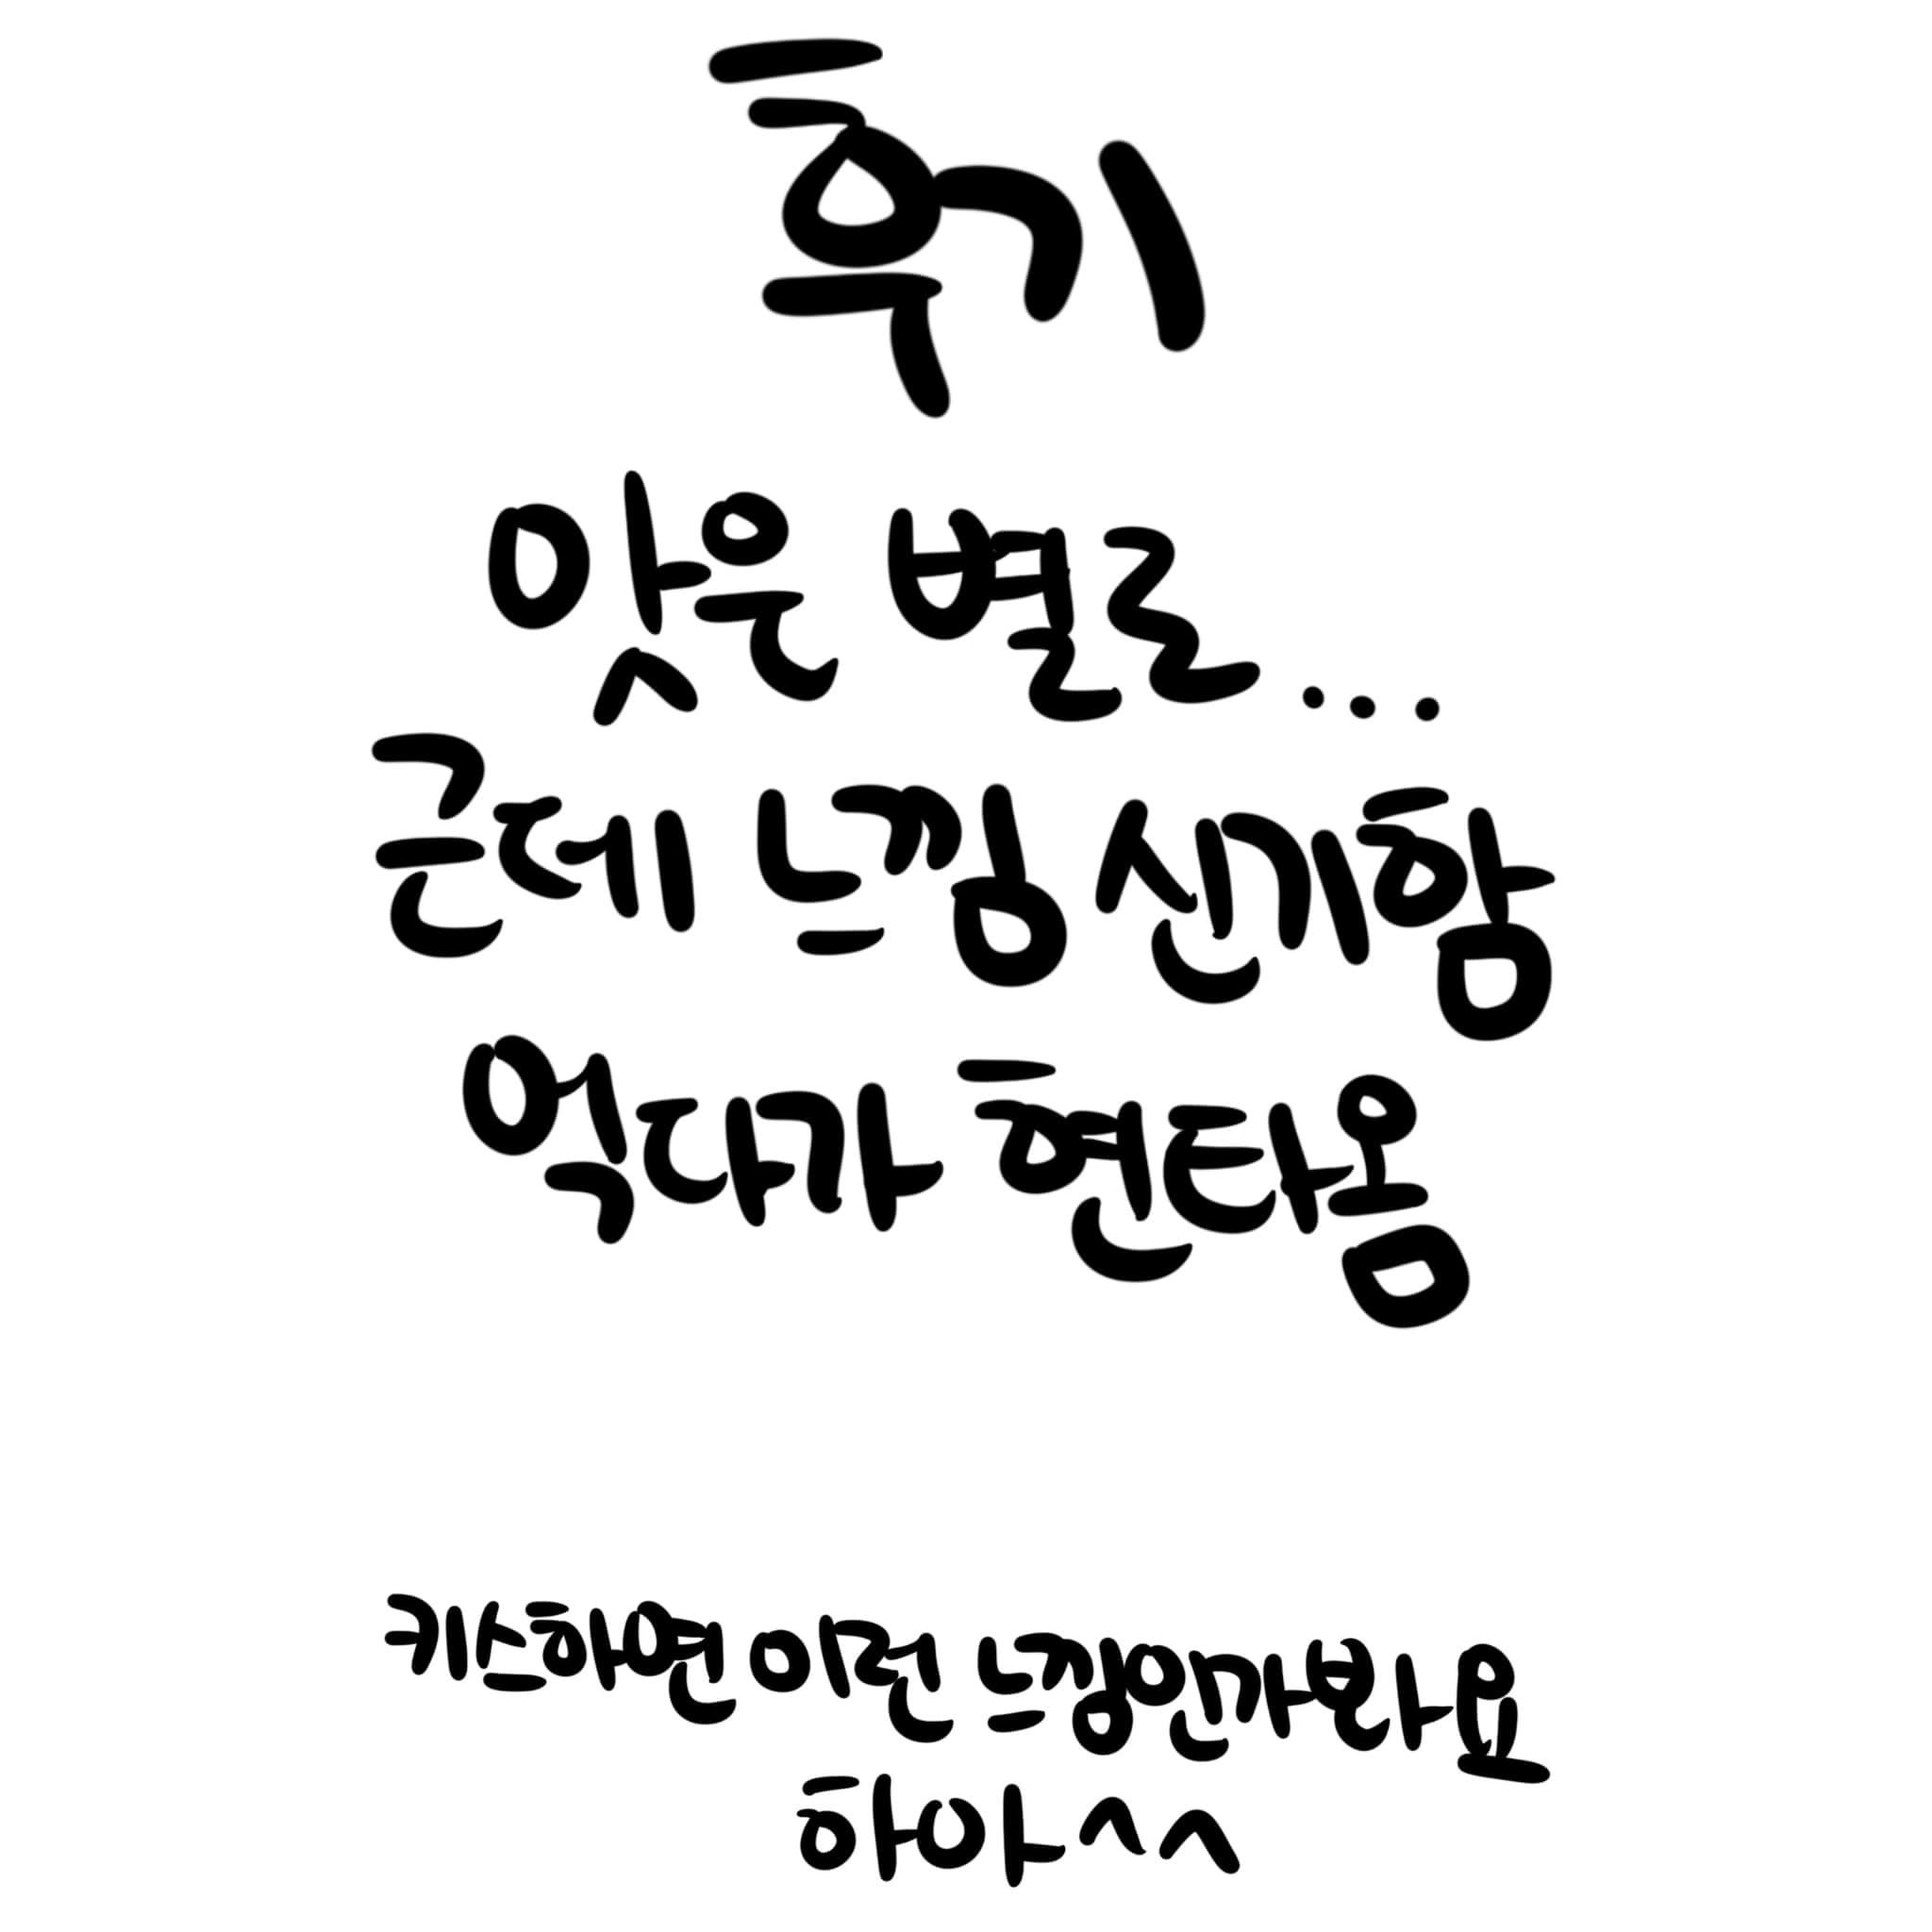 후기
맛은 별로...
근데 느낌 신기함
먹다가 현타옴
키스하면 이런 느낌인가봐요
하아^^